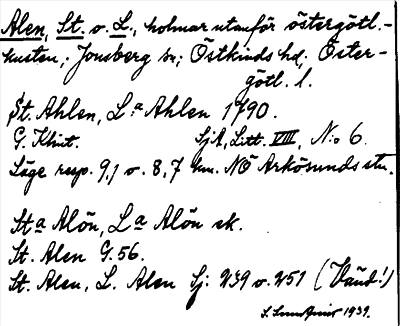 Alen, St. o. L., holmar utanför östergötl.-
kusten; Jonsberg sn; Östkinds hd; Öster-
götl. l.
St. Ahlen, L:a Ahlen 1790.
G. Klint. SjA, Litt. VIII, N:o 6.
Läge resp. 9,1 o. 8,7 km. NÖ Arkösunds stn.
St:a Alön, L:a Alön ek.
St. Alen G. 56.
St. Alen, L. Alen Sj: 239 o. 251 (Vänd!)
1939.